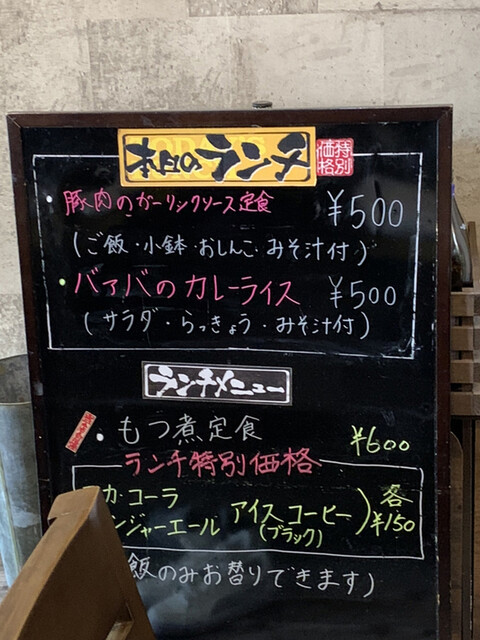 本日のランチ 特別価格
・豚肉のガーリックソース定食 ¥500
(ご飯・小鉢・おしんこ・みそ汁付)
・バァバのカレーライス ¥500
(サラダ・らっきょう・みそ汁付)
ランチメニュー
・もつ煮定食 ¥600
ランチ特別価格
カ・コーラ アイスコーヒー 各
ンジャーエール (ブラック) ¥150
飯のみお替りできます)